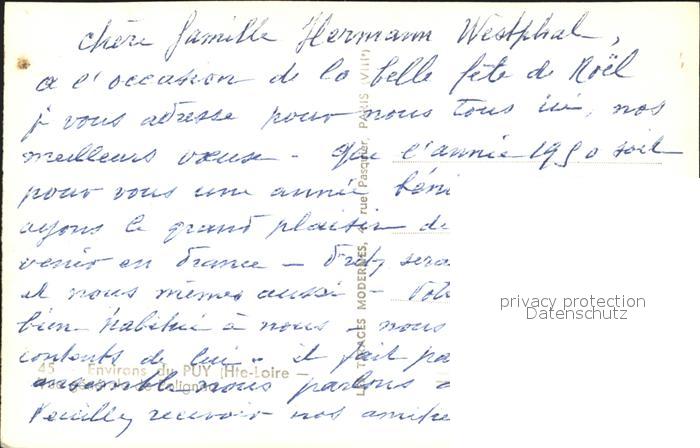 chère famille Hermann Westphal,
a l'occasion de la belle fête de Noël
je vous adresse pour nous tous ici, nos
meilleurs vœux - que l'année 1950 soit
pour vous une année béni
ayons le grand plaisir de
venir en France - Fredy sera
et nous mêmes aussi -
bien habitué à nous - nous
contents de lui - il fait pa
ensemble nous parlons
Veuillez recevoir nos amitié
45 - Environs du PUY (Hte-Loire -
LES TIRAGES MODERNES, rue Pasquier, PARIS (VIIIe)
privacy protection
Datenschutz